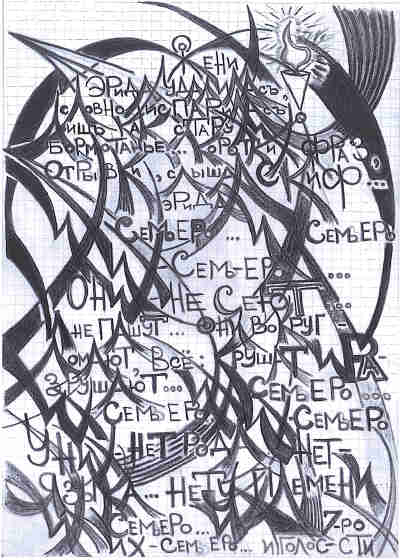 И ЭРИДА УДАЛИЛАСЬ,
СЛОВНО ИСПАРИЛАСЬ
ЛИШЬ ТА СТАРУ
БОРМОТАНЬЕ... ОБРЫВКИ ФРАЗ,
ОТРЫВКИ, СЛЫШАЛ СКИФ...
ЭРИДА
СЕМЬЕРО... СЕМЬЕРО
-СЕМЬЕРО...
ОНИ - НЕ СЕЮТ...
НЕ ПАШУТ... ОНИ ВОКРУГ -
ЛОМАЮТ ВСЁ: КРУШАТ И РАЗ-
РУШАЮТ... СЕМЬЕРО...
СЕМЬЕРО СЕМЬЕРО
У НИХ - НЕТ РОДА НЕТ -
ЯЗЫКА... НЕТУ ПЛЕМЕНИ
СЕМЕРО... 7-РО
ИХ - СЕМЬЕРО... И ГОЛОС - СТИ